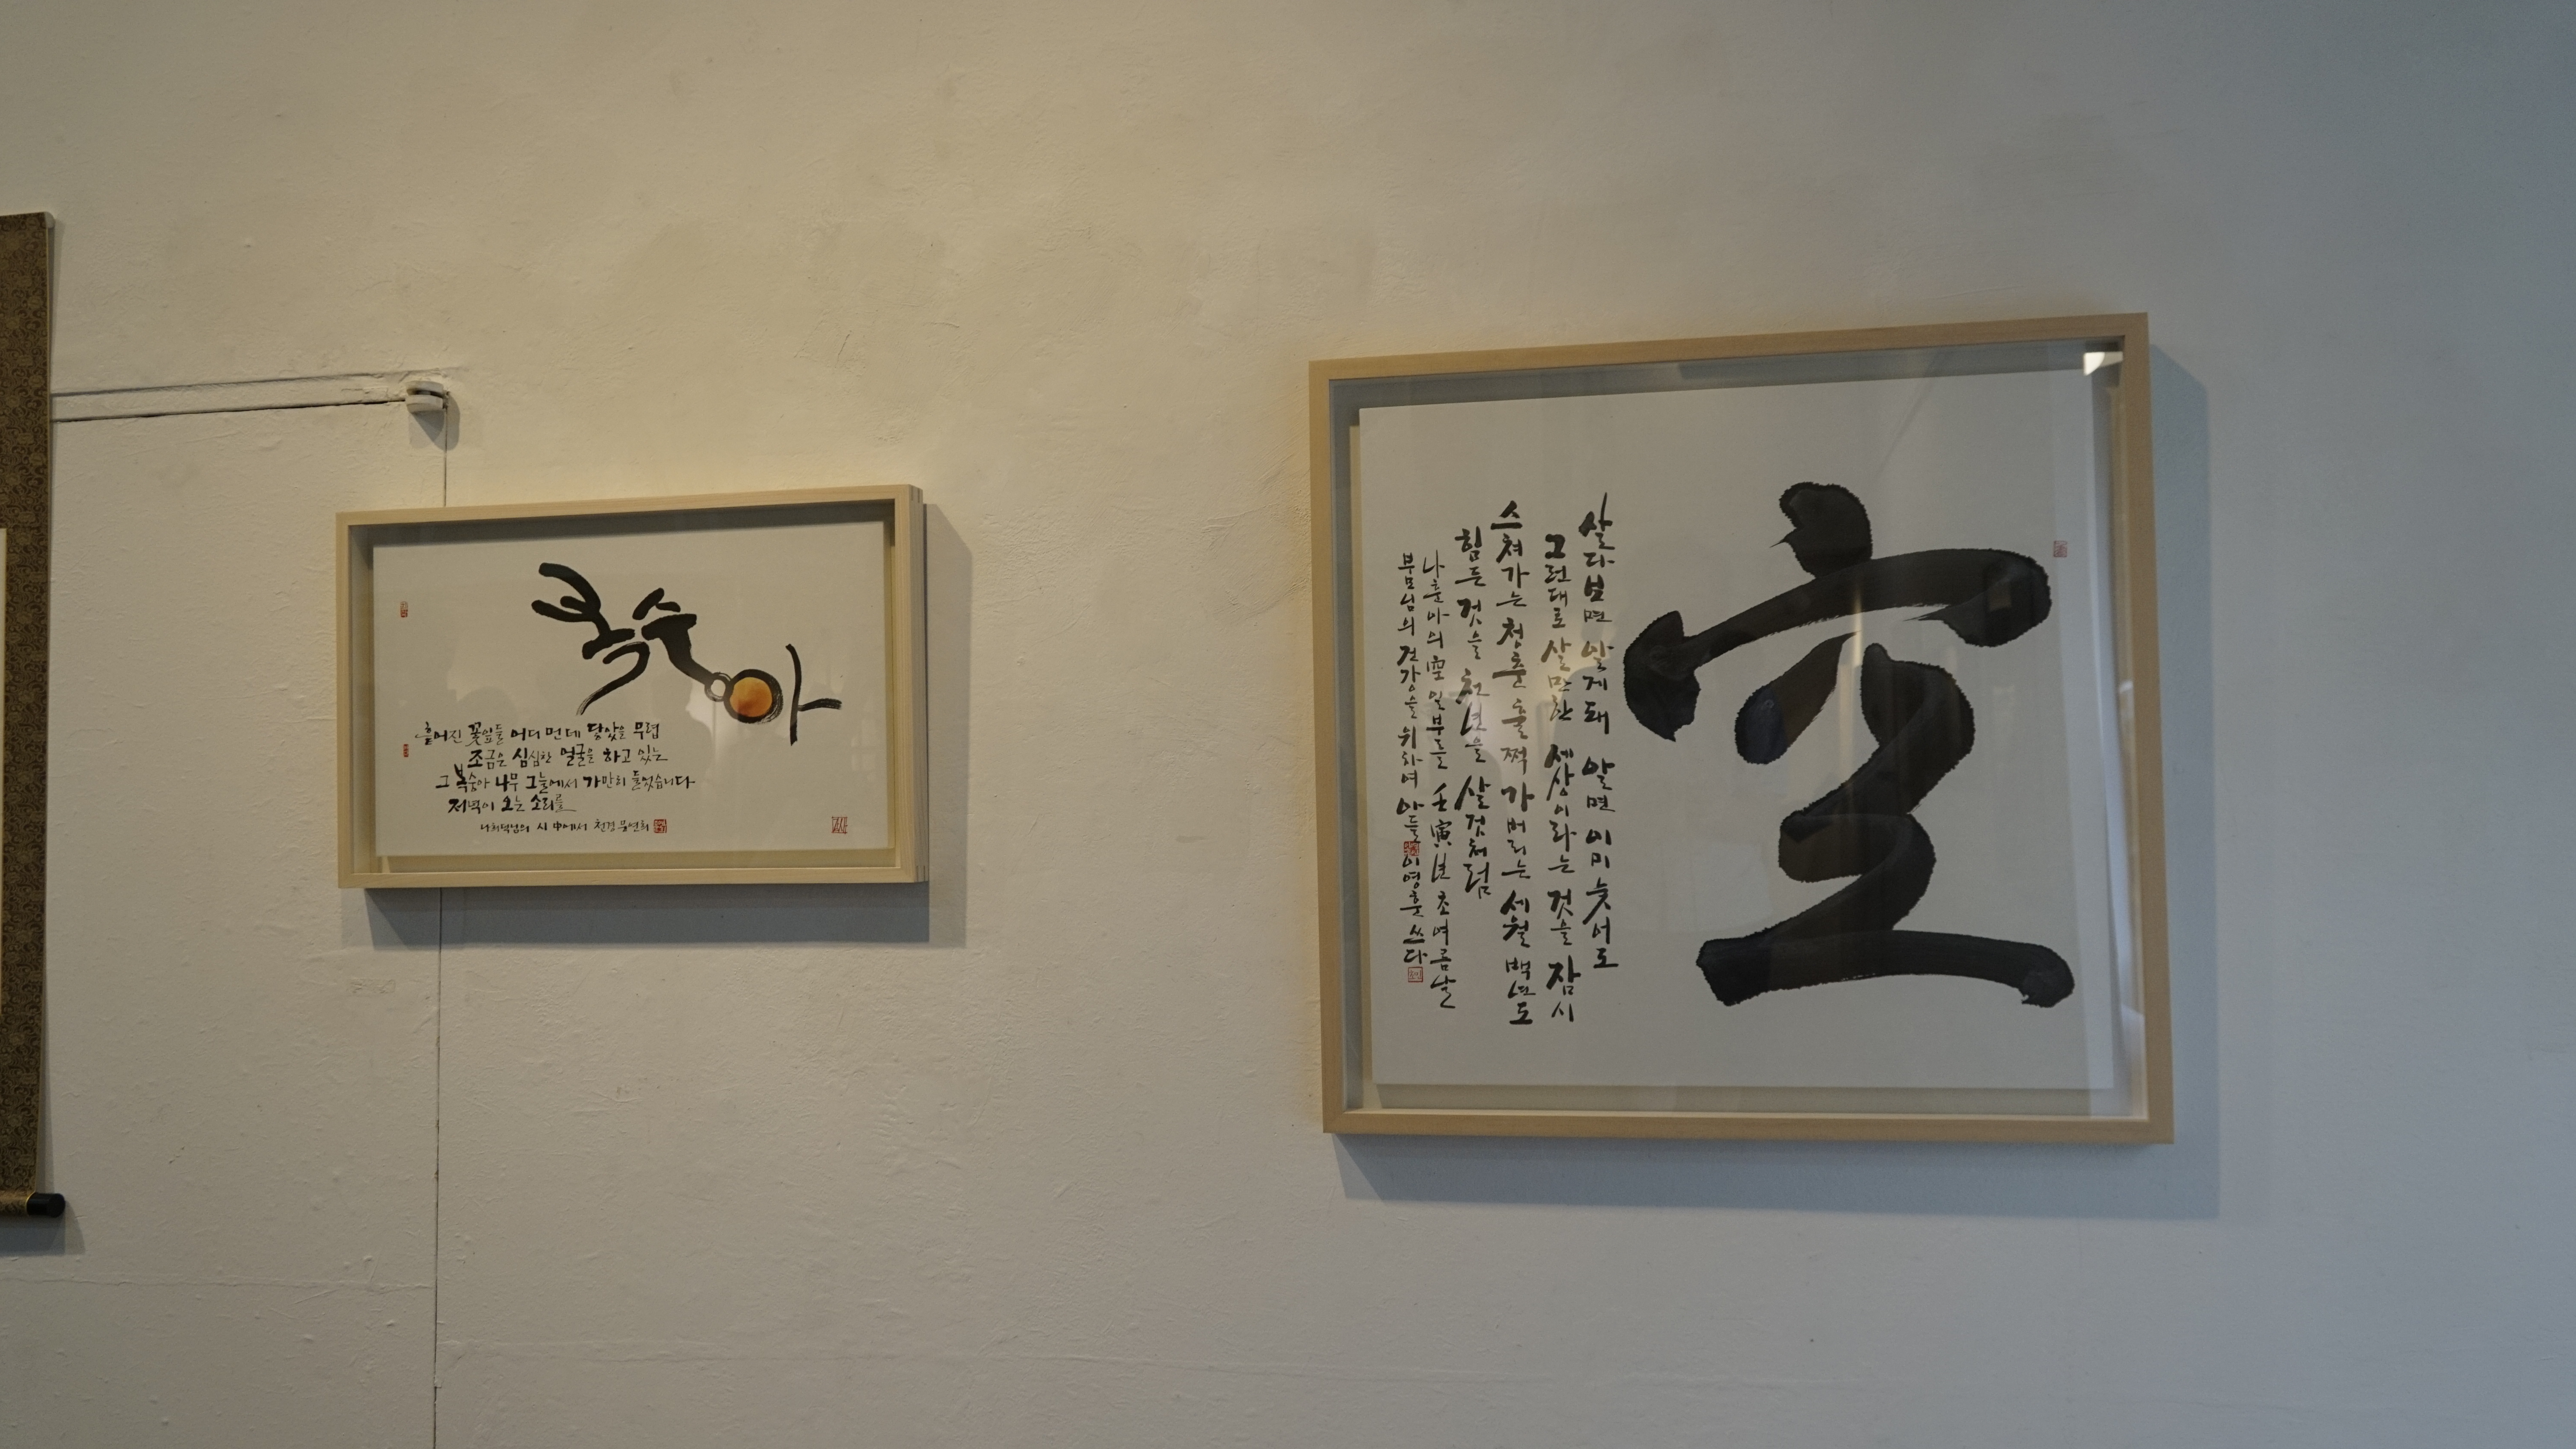 복숭아
흩어진 꽃잎들 어디 먼데 닿았을 무렵
조금은 심심한 얼굴을 하고 있는
그 복숭아 나무 그늘에서 가만히 들었습니다
저녁이 오는 소리를
나희덕님의 시 中에서 천경 문연희
空
살다보면 알게돼 알면 이미 늦어도
그런대로 살만한 세상이라는 것을 잠시
스쳐가는 청춘 훌쩍 가버리는 세월 백년도
힘든 것을 천년을 살것처럼
나훈아의 空 일부를 壬寅년 초여름날
부모님의 건강을 위하여 아들 이영훈 쓰다